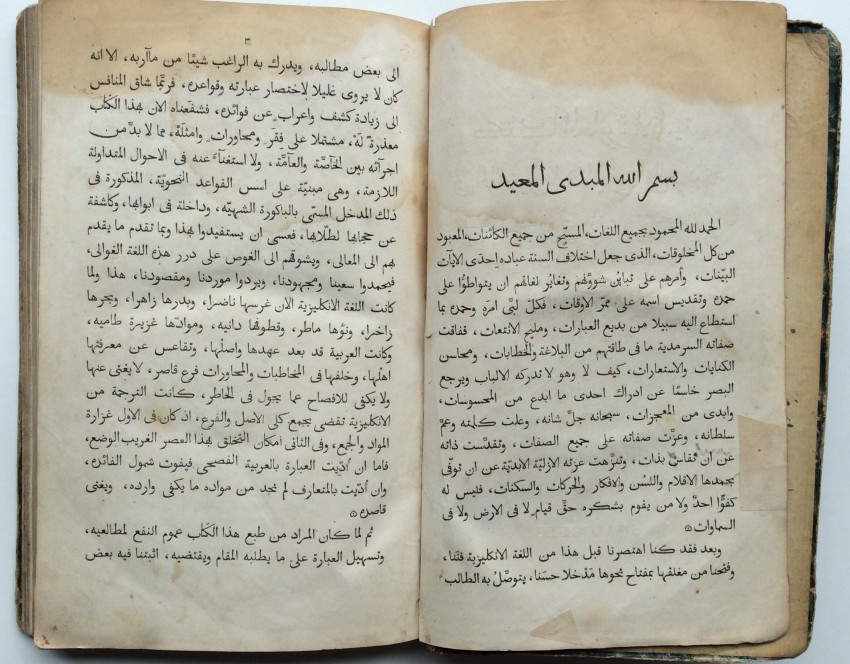 بسم الله المبدئ المعيد
الحمد لله المحمود بجميع اللغات، المسبّح من جميع الكائنات، المعبود
من كل المخلوقات، الذى جعل اختلاف السنة عباده احدى الآيات
البيّنات، وأمرهم على تباين شوونهم وتغاير لغاتهم ان يتواطوُا على
حمده وتقديس اسمه على ممرّ الاوقات، فكلّ لبَّى امره وحمده بما
استطاع اليه سبيلا من بديع العبارات، ومليح الالتفات، ففاقت
صفاته السرمدية ما فى طاقتهم من البلاغة والخطابات، ومحاسن
الكنايات والاستعارات، كيف لا وهو لا تدركه الالباب ويرجع
البصر خاسئًا عن ادراك احدى ما ابدع من المحسوسات،
وابدى من المعجزات، سبحانه جلّ شانه، وعلت كلمته وعمّ
سلطانه، وعزّت صفاته على جميع الصفات، وتقدّست ذاته
عن ان تُقاس بذات، وتنزّهت عزته الازليّة الابديّة عن ان توفّى
بحمدها الاقلام واللسُن والافكار والحركات والسكنات، فليس له
كفوًا احدٌ ولا من يقوم بشكره حقَّ قيام لا فى الارض ولا فى
السماوات
وبعد فقد كنا اهتصرنا قبل هذا من اللغة الانكليزية فننا،
وفتحنا من مغلقها بمفتاح نحوها مَدْخلا حسَنا، يتوصّل به الطالب
٣
الى بعض مطالبه، ويدرك به الراغب شيئا من مآربه، الا انه
كان لا يروى غليلا لاختصار عبارته وقواعده، فربّما شاق المنافس
الى زيادة كشف واعراب عن فوائده، فشفّعناه الان بهذا الكتاب
معذرة له، مشتملا على فِقَرٍ ومحاورات وامثلة، مما لا بدّ من
اجرآئه بين الخاصّة والعآمّة، ولا استغنآء عنه فى الاحوال المتداولة
اللازمة، وهى مبنيّة على اسس القواعد النحويّة، المذكورة فى
ذلك المدخل المسمّى بالباكورة الشهيّه، وداخلة فى ابوابها، وكاشفة
عن حجابها لطلّابها، فعسى ان يستفيدوا بهذا وبما تقدم ما يقدم
بهم الى المعالى، ويشوقهم الى الغوص على درر هذه اللغة الغوالى،
فيحمدوا سعينا ومجهودنا، ويردوا موردنا ومقصودنا، هذا ولما
كانت اللغة الانكليزية الان غرسها ناضرا، وبدرها زاهرا، وبحرها
زاخرا، ونوُها ماطر، وقطوفها دانيه، وموادّها غزيرة طاميه،
وكانت العربية قد بعد عهدها واصلُها، وتقاعس عن معرفتها
اهلُها، وخلفها فى المخاطبات والمحاورات فرع قاصر، لا يغنى عنها
ولا يكفى للافصاح عما يجول فى الخاطر، كانت الترجمة من
الانكليزية تقضى بجمع كلى الاصل والفرع، اذ كان فى الاول غزارة
المواد والجمع، وفى الثانى امكان التخلق بهذا العصر الغريب الوضع،
فاما ان أدّيت العبارة بالعربية الفصحى فيفوت شمول الفائده،
وان أدّيت بالمتعارف لم نجد من مواده ما يكفى وارده، ويغنى
قاصده
ثم لما كان المراد من طبع هذا الكتاب عموم النفع لمطالعيه،
وتسهيل العبارة على ما يطلبه المقام ويقتضيه، اثبتنا فيه بعض